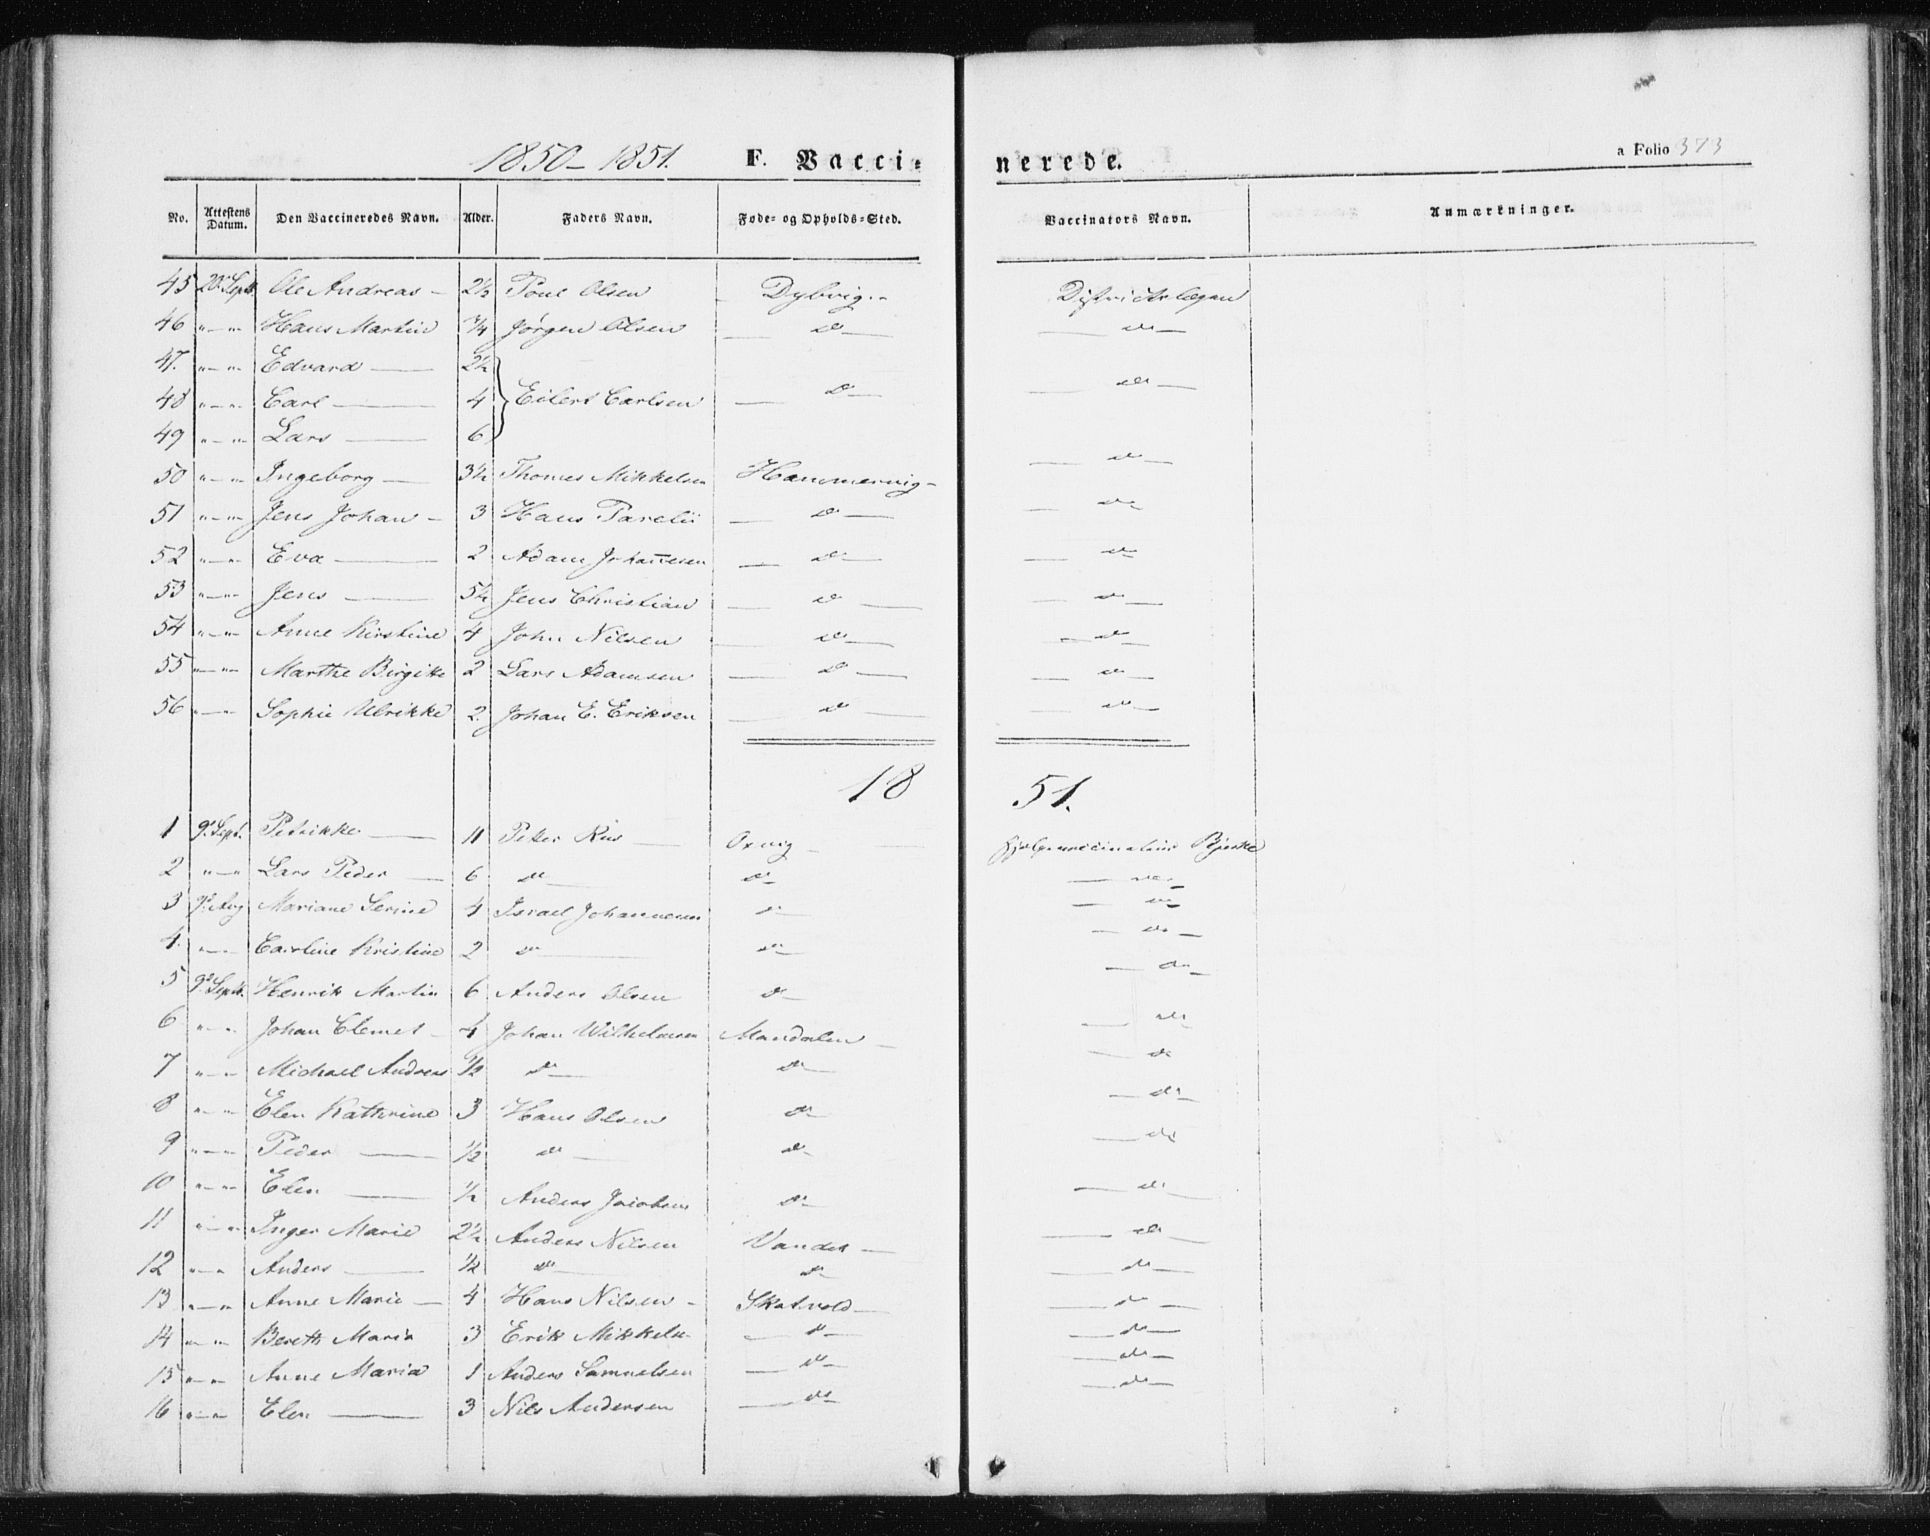 1850–1851. F. Vacci- nerede. a Folio 373
No. Attestens Datum. Den Vaccineredes Navn. Alder. Faders Navn. Føde- og Opholds-Sted. Vaccinators Navn. Anmærkninger.
45 20 Sept. Ole Andreas – 2½ Poul Olsen Dybvig – Districtslægen
46 " – " Hans Martin ¾ Jørgen Olsen – do – – do –
47. " – " Edvard – 2½
48 " – " Carl – 4 } Eilert Carlsen – do – – do –
49 " – " Lars – 6
50 " – " Ingeborg – 3½ Thomes Mikkelsen Hammervig – – do –
51 " – " Jens Johan – 3 Hans Parelii – do – – do
52 " – " Eva – 2 Adam Johannesen – do – – do
53 " – " Jens – 5½ Jens Christian – do – – do –
54 " – " Anne Kirstine 4 John Nilsen – do – – do –
55 " – " Marthe Birgitte 2 Lars Adamsen – do – – do –
56 " – " Sophie Ulrikke 2. Johan E. Eriksen – do – – do –
18 51.
1 9. Sept. Petrikke – 11 Peter – Oxvig – Bjerke
2 " – " Lars Peder – 6 do – do – – do –
3 9. Aug Mariane Serine 4 Israel Johannesen do – – do –
4. " – " Caroline Kristine 2 do – do – – do –
5 9. Sept. Henrik Martin 6 Anders Olsen do – – do –
6 " – " Johan Clemet – 4 Johan Wilhelmsen Mandalen – – do
7 " – " Michael Andreas ½ do – do – – do
8 " – " Elen Kathrine 3 Hans Olsen do – – do –
9 " – " Peder – ½ do – do – – do
10 " – " Elen – ½ Anders Jacobsen do – – do –
11 " – " Inger Marie 2½ Anders Nilsen – – do –
12 " – " Anders – ½ do – do – – do –
13 " – " Anne Marie – 4 Hans Nilsen – Skatvold – – do –
14 " – " Bereth Maria 3 Erik Mikkels. – do – – do –
15 " – " Anne Maria 1 Anders Samuelsen – do – – do –
16 " – " Elen – 3 Nils Andersen – do – – do –